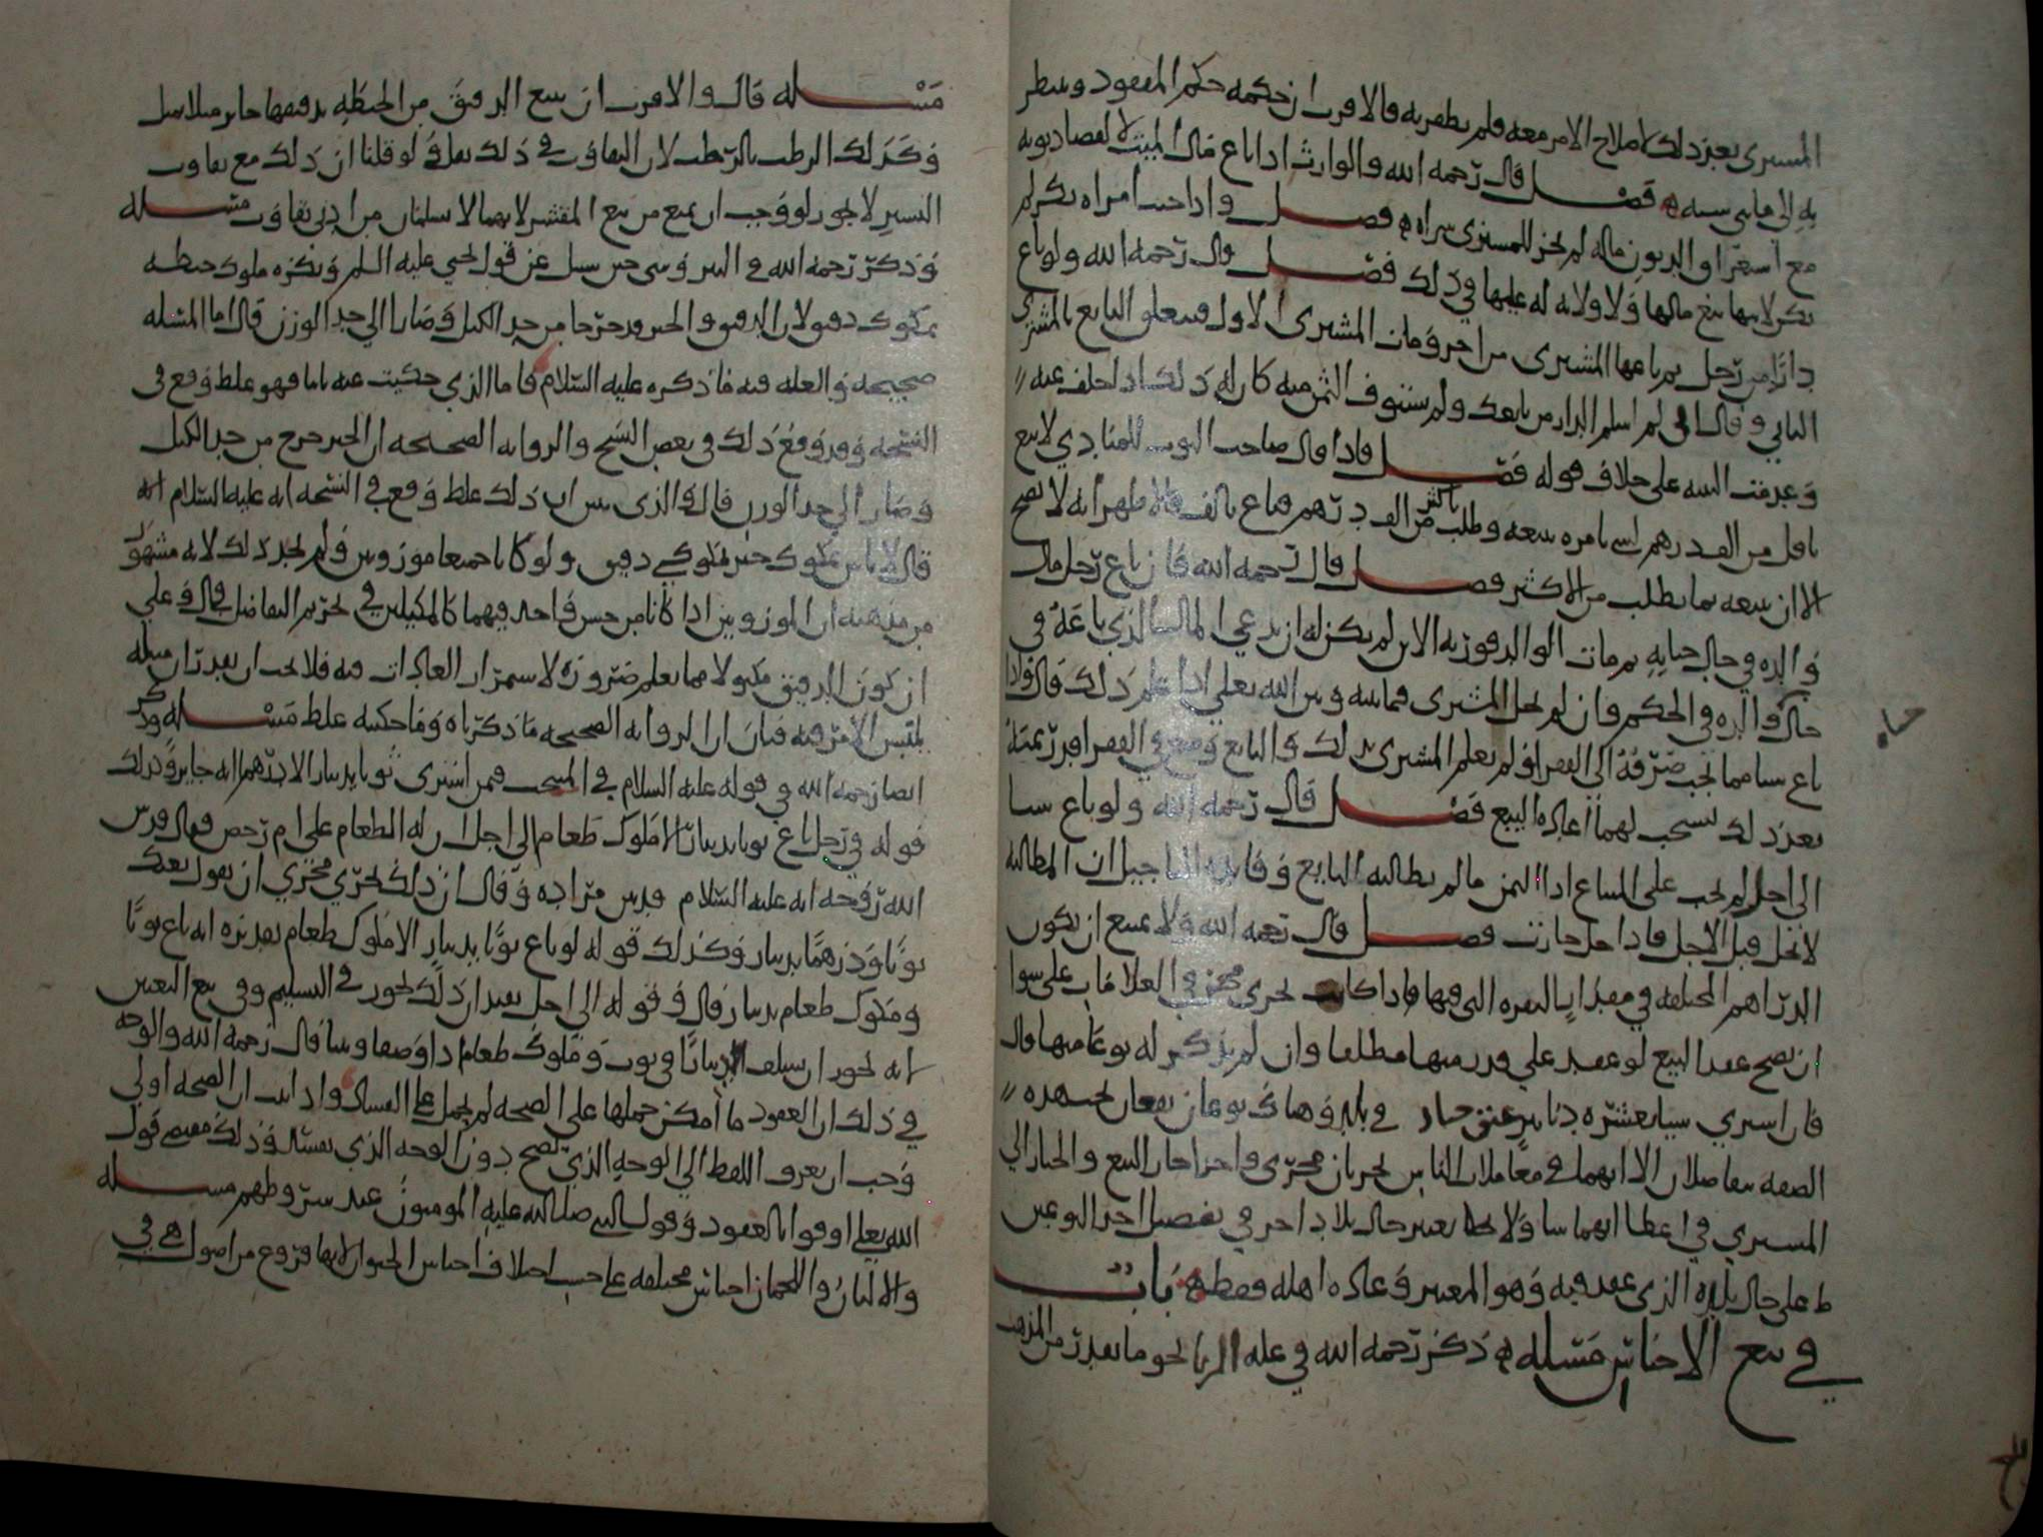 المشتري بعد ذلك لاصلاح الامر معه فلم يظفر به فالاقرب ان حكمه حكم المفقود وينظر
به الى ما بين سنه فصل قال رحمه الله والوارث اذا باع مال الميت لا لقضا ديونه
مع استغراق الديون ماله لم يجز للمشتري شراه فصل واذا جنت امراه بكر لم
يكن لابيها بيع مالها ولا ولايه له عليها في ذلك فصل قال رحمه الله ولو باع
دارا من رجل ثم باعها المشتري من اخر ومات المشتري الاول فتعلق البايع بالمشتري
الثاني وقال اني لم اسلم الدار من بايعك ولم استوف الثمن منه كان له ذلك اذا حلف عنه
وعدمت البينه على خلاف قوله فصل فاذا قال صاحب الثوب للمنادي لا تبع
باقل من الف درهم او امره ببيعه وطلب باكثر من الف درهم فباع بالف فالاظهر انه لا يصح
الا ان يبيعه بما يطلب من الاكثر فصل قال رحمه الله فان باع رجل مال
والده في حال حياته ثم مات الوالد فورثه الابن لم يكن له ان يدعي المال الذي باعه في
حال والده في الحكم فان لم يحل للمشتري فيما بينه وبين الله تعلى اذا علم ذلك قال واذا
باع شيا مما يجب صرفه الى الفقرا ولم يعلم المشتري بذلك والبايع وضع في الفقرا قدر ثمنه
بعد ذلك يستحب لهما اعاده البيع فصل قال رحمه الله ولو باع شيا
الى اجل لم يجب على المبتاع اداا الثمن ما لم يطالبه البايع وفايده التاجيل ان المطالبه
لا تحل قبل الاجل فاذا حل جازت فصل قال رحمه الله ولا يمتنع ان يكون
الدراهم المختلفه في مقدار النقره التي فيها فاذا كانت تجري مجرى في المعلاملات على سوا
ان يصح عقد البيع لو عقد على قدر منها مطلقا وان لم يذكر له نوعا منها قال
فان اشترى شيا بعشره دنانير عتق جياد في بلد وهناك نوعان يقعان تحت هذه
الصفه يتفاضلان الا انهما في معاملات الناس يجريان مجرى واحدا جاز البيع والخيار الى
المشتري في اعطا ايهما شا ولا يعتبر حال بلد اخر في تفضيل احد النوعين
على حال بلده الذي عقد فيه وهو المعتبر وعاده اهله فقط باب
في بيع الاجناس مسله ذكر رحمه الله في عله الربا نحو ما تقدم من المذهب
مسله قال والاقرب ان بيع الدقيق من الحنطه بدقيقها جايز مثلا بمثل
وكذلك الرطب بالرطب لان التفاوت في ذلك يقل ولو قلنا ان ذلك مع تفاوت
اليسير لا يجوز لوجب ان يمنع من بيع المقشر لانهما لا يسلمان من ادنى تفاوت مسله
وذكر رحمه الله حين سيل عن قول يحيى عليه السلم ويكره مكوك حنطه
بمكوك دقيق لان الدقيق والخبز قد خرجا من حد الكيل وصارا الى حد الوزن قال اما المسله
صحيحه والعله فيه ما ذكره عليه السلام فاما الذي حكيت عنه فهو غلط وقع في
النسخه وقد وقع ذلك في بعض النسخ والروايه الصحيحه ان الخبز خرج من حد الكيل
وصار الى حد الوزن قال والذي يبين ان ذلك غلط وقع في النسخه انه عليه السلام
قال لا باس بمكوك خبز بمكوكي دقيق ولو كانا جميعا موزونين لم يجز ذلك لانه مشهور
من مذهبه ان الموزونين اذا كانا من جنس واحد فيهما كالمكيلين في تحريم التفاضل قال وعلى
ان كون الدقيق مكيولا مما يعلم ضروره لاستمرار العادات فيه فلا يجب ان يقدر ان مثله
يلتبس الامر فيه فبان ان الروايه الصحيحه ما ذكرناه وما حكيته غلط مسله وذكر
ايضا رحمه الله في قوله عليه السلام في المنتخب فيمن اشترى ثوبا بدينار الا درهما انه جايز وكذلك
قوله في رجل باع ثوبا بدينار الا مكوك طعام الى اجل ان له الطعام على ام رخص فقال قدس
الله روحه انه عليه السلام قد بين مراده وقال ان ذلك يجري مجرى ان يقول بعتك
ثوبا ودرهما بدينار وكذلك قوله لو باع ثوبا بدينار الا مكوك طعام تقديره انه باع ثوبا
ومكوك طعام بدينار قال وقوله الى اجل يفيد ان ذلك يجوز في التسليم وفي بيع التعين
انه يجوز ان يسلف دينارا في ثوب ومكوك طعام اذا وصفا وبينا قال رحمه الله والوجه
في ذلك ان العقود ما امكن حملها على الصحه لم تحمل على الفساد واذا ان الصحه اولى
وجب ان يصرف اللفظ الى الوجه الذي يصح دون الوجه الذي يفسد وذلك مقتضى قول
الله تعلى اوفوا بالعقود وقول النبي صلى الله عليه المومنون عند شروطهم مسله
والالبان واللحمان اجناس مختلفه على حسب اختلاف اجناس الحيوان لانها فروع من اصول هي في